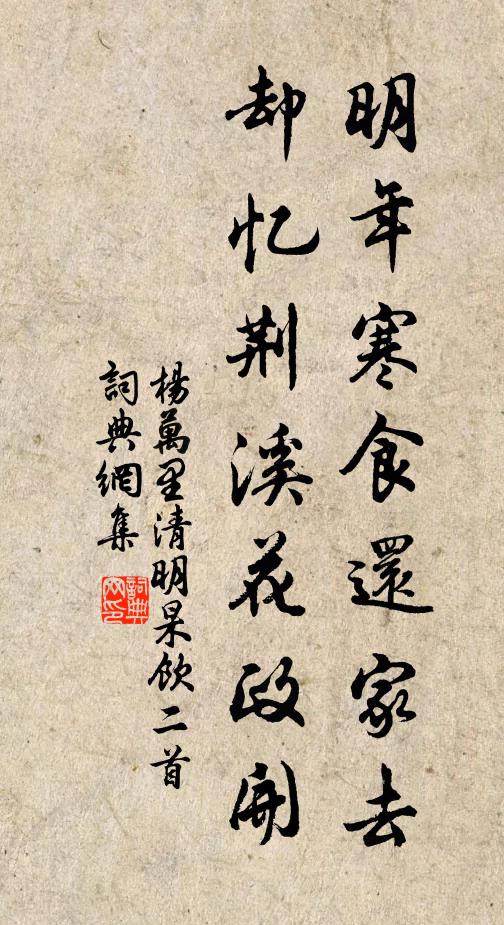 明年寒食還家去
却忆荆溪花政開
楊萬里清明杲飲二首
詞典網集
詞典
网印